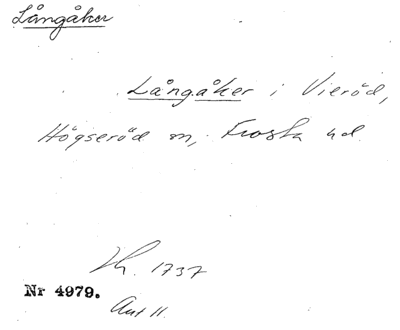 Långåker
Långåker i Vieröd,
Högseröd sn, Frosta hd.
Lh. 1737
Nr 4979.
Avt II.